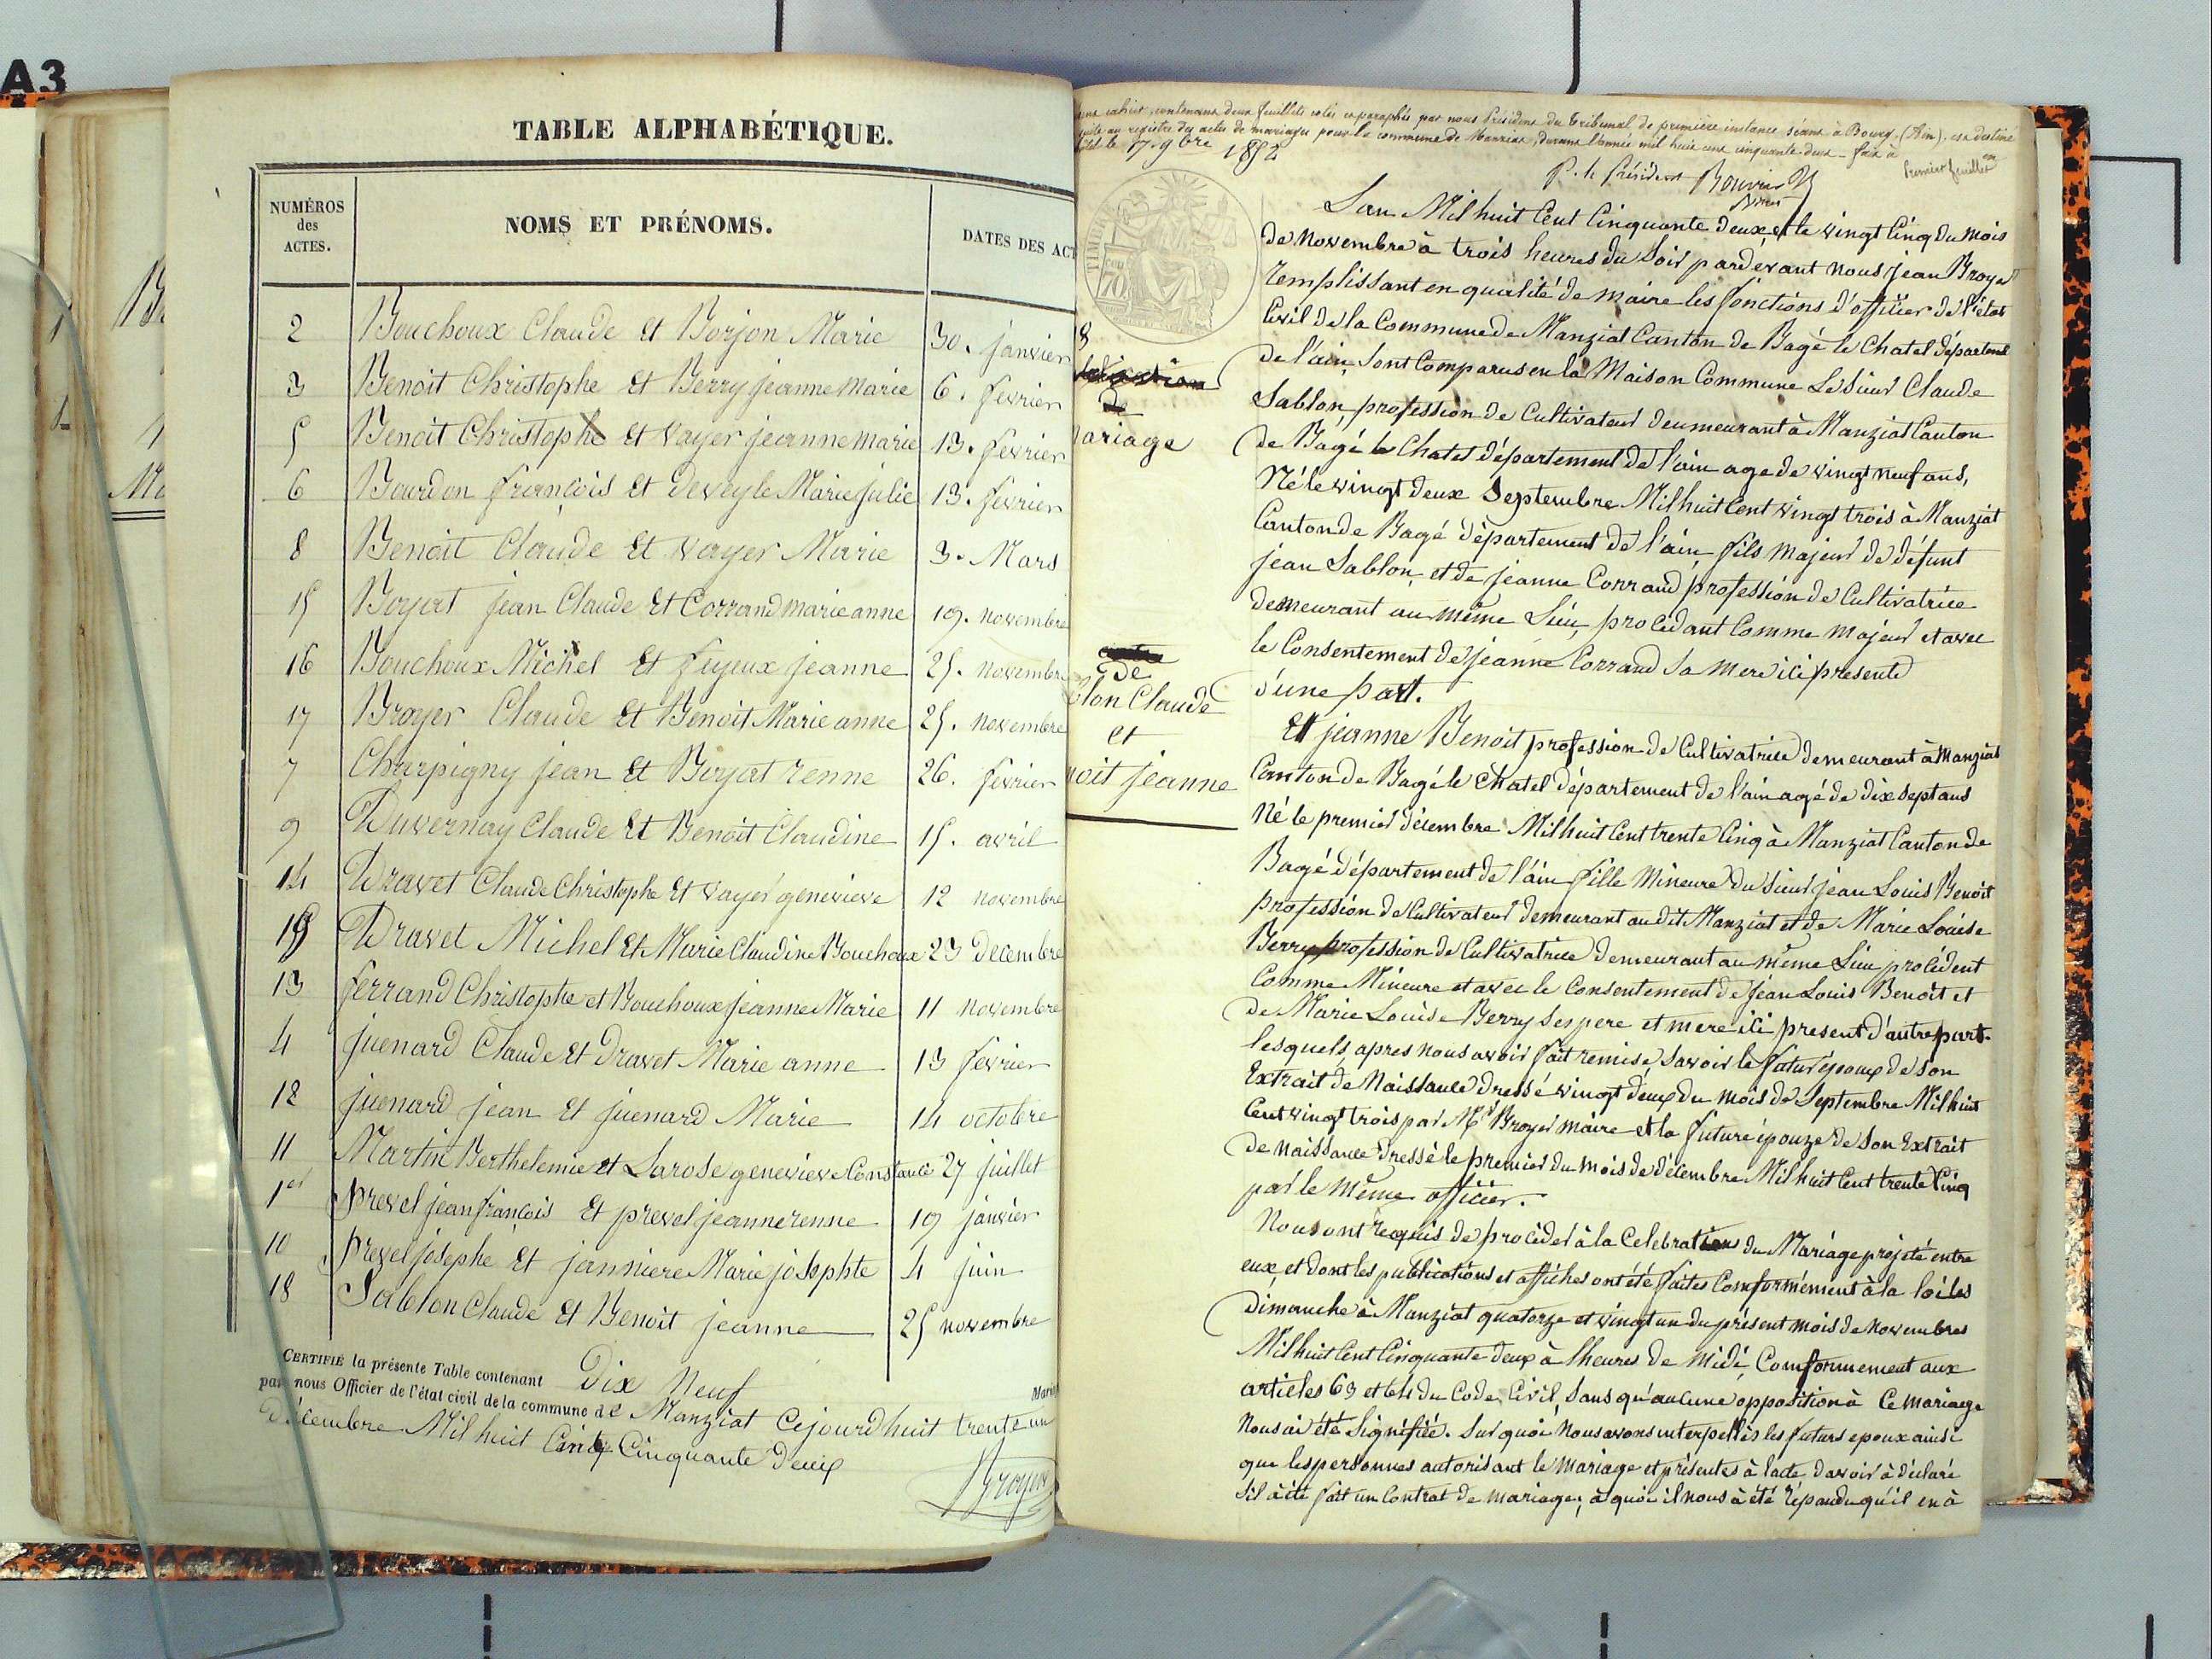 A3
TABLE ALPHABÉTIQUE.
NUMÉROS des ACTES. NOMS ET PRÉNOMS. DATES DES ACT
2 Bouchoux Claude et Borjon Marie 30. janvier
3 Benoit Christophe et Berry jeanne marie 6. fevrier
5 Benoit Christophe et Vayer jeanne marie 13. fevrier
6 Bourdon françois et deveyle Marie julie 13. fevrier
8 Benoit Claude et Vayer Marie 3. Mars
15 Boyat jean Claude et Corrand marie anne 19. novembre
16 Bouchoux Michel et feyeux jeanne 25. novembre
17 Broyer Claude et Benoit Marie anne 25. novembre
7 Charpigny jean et Boyat renne 26. fevrier
9 Duvernay Claude et Benoit Claudine 15. avril
14 Dravet Claude Christophe et Vayer genevieve 12 novembre
19 Dravet Michel et Marie Claudine Bouchoux 23 decembre
13 ferrand Christophe et Bouchoux jeanne Marie 11 novembre
4 juenard Claude et Dravet Marie anne 13 fevrier
12 juenard jean et juenard Marie 14 octobre
11 Martin Berthelemie et Larose genevieve Constance 27 juillet
1er prevel jean françois et prevel jeanne renne 19 janvier
10 prevel josephe et janniere Marie josephte 4 juin
18 Sablon Claude et Benoit jeanne 25 novembre
CERTIFIÉ la présente Table contenant Dix Neuf Mari
par nous Officier de l'état civil de la commune de Manziat Cejourdhuit trente un
Décembre Mil huit Cent Cinquante Deux
Broyer
cahier, contenant deux feuillets cotés et paraphés par nous Président du tribunal de première instance séant à Bourg (Ain), est destiné
au registre des actes de mariages pour la commune de Manziat, durant l'année mil huit cent cinquante deux - fait à
le 17 9bre 1852
P. le Président Bouvier
Premier feuillet
TIMBRE
70
8
de
ariage
de
blon Claude
et
noit jeanne
Lan Mil huit Cent Cinquante Deux, et le vingt Cinq du Mois
de Novembre à trois heures du Soir pardevant nous jean Broyer
remplissant en qualité de maire les fonctions d'officier de l'état
Civil de la Commune de Manziat Canton de Bagé le Chatel départemt
de l'ain, Sont Comparus en la Maison Commune Le Sieur Claude
Sablon, profession de Cultivateur deumeurant à Manziat Canton
de Bagé le Chatel département de l'ain age de vingt neuf ans,
Né le vingt deux Septembre Mil huit Cent vingt trois à Manziat
Canton de Bagé département de l'ain, fils majeur de défunt
jean Sablon, et de jeanne Corrand profession de Cultivatrice
demeurant au même Lieu, procédant Comme Majeur et avec
le Consentement de jeanne Corrand Sa mere ici presente
d'une part.
Et jeanne Benoit profession de Cultivatrice demeurant à Manziat
Canton de Bagé le Chatel département de l'ain agé de dix sept ans
Né le premier décembre Mil huit Cent trente Cinq à Manziat Canton de
Bagé département de l'ain fille Mineure du Sieur jean Louis Benoit
profession de Cultivateur demeurant au dit Manziat et de Marie Louise
Berry profession de Cultivatrice demeurant au même Lieu procédent
Comme Mineure et avec le Consentement de jean Louis Benoit et
de Marie Louise Berry ses pere et mere ici present d'autre part.
lesquels, apres nous avoir fait remise, Savoir le futur époux de Son
Extrait de Naissance dressé vingt deux du mois de Septembre Mil huit
Cent vingt trois par Mr Broyer maire et la future épouze de Son Extrait
de naissance dressé le premier du mois de décembre Mil huit Cent trente Cinq
par le même officier.
Nous ont requis de procéder à la Celebration du Mariage projeté entre
eux, et dont les publications et affiches ont été faites Comformément à la loi les
dimanche à Manziat quatorze et vingt un du présent mois de Novembres
Mil huit Cent Cinquante deux à lheures de midi, Comformement aux
articles 63 et 64 du Code Civil, Sans qu'aucune opposition à Ce mariage
Nous ai été Signifiée. Sur quoi Nous avons interpellés les futurs epoux ainsi
que les personnes autorisant le Mariage et présentes à lacte davoir à déclaré
sil à été fait un Contrat de mariage, à quoi il nous à été répondu qu'il en à